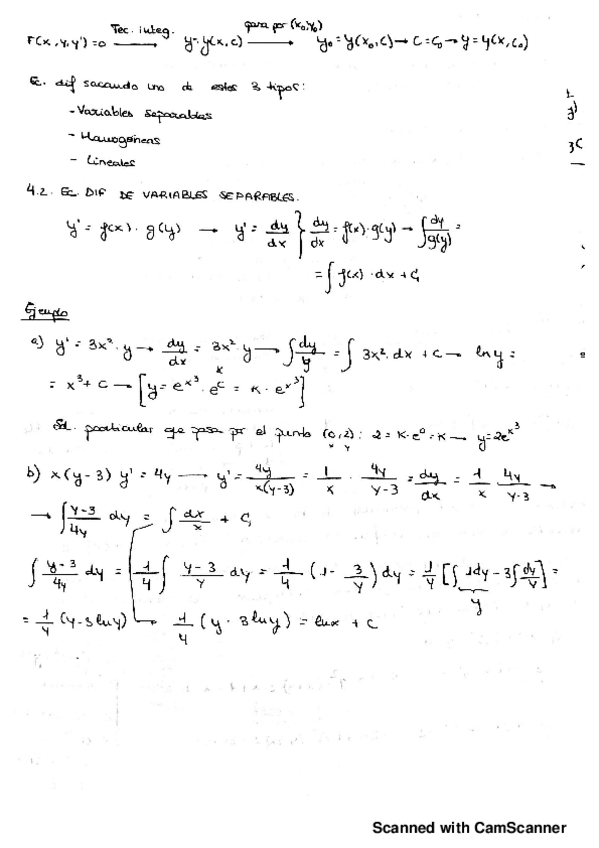 Tec. integ. pasa por (x₀,y₀)
F(x, y, y') = 0 ⟶ y = y(x, C) ⟶ y₀ = y(x₀, C) → C = C₀ → y = y(x, C₀)
Ec. dif sacando uno de estos 3 tipos:
- Variables Separables
- Homogéneas
- Lineales
4.2. EC. DIF DE VARIABLES SEPARABLES.
y' = f(x) · g(y) → y' = dy/dx } dy/dx = f(x) · g(y) → ∫ dy/g(y) =
= ∫ f(x) · dx + C,
Ejemplo
a) y' = 3x² · y → dy/dx = 3x² · y → ∫ dy/y = ∫ 3x² · dx + C → ln y =
= x³ + C → [y = e^x³ · e^C = K · e^x³]
K
Sol. particular que pasa por el punto (0,2): 2 = K · e⁰ = K → y = 2e^x³
x y
b) x(y-3) y' = 4y → y' = 4y/x(y-3) = 1/x · 4y/y-3 = dy/dx = 1/x · 4y/y-3 →
→ ∫ y-3/4y dy = ∫ dx/x + C,
∫ y-3/4y dy = 1/4 ∫ y-3/y dy = 1/4 (1 - 3/y) dy = 1/4 [∫ 1dy - 3∫ dy/y] =
y
= 1/4 (y - 3 ln y) → 1/4 (y · 3 ln y) = ln x + C
Scanned with CamScanner